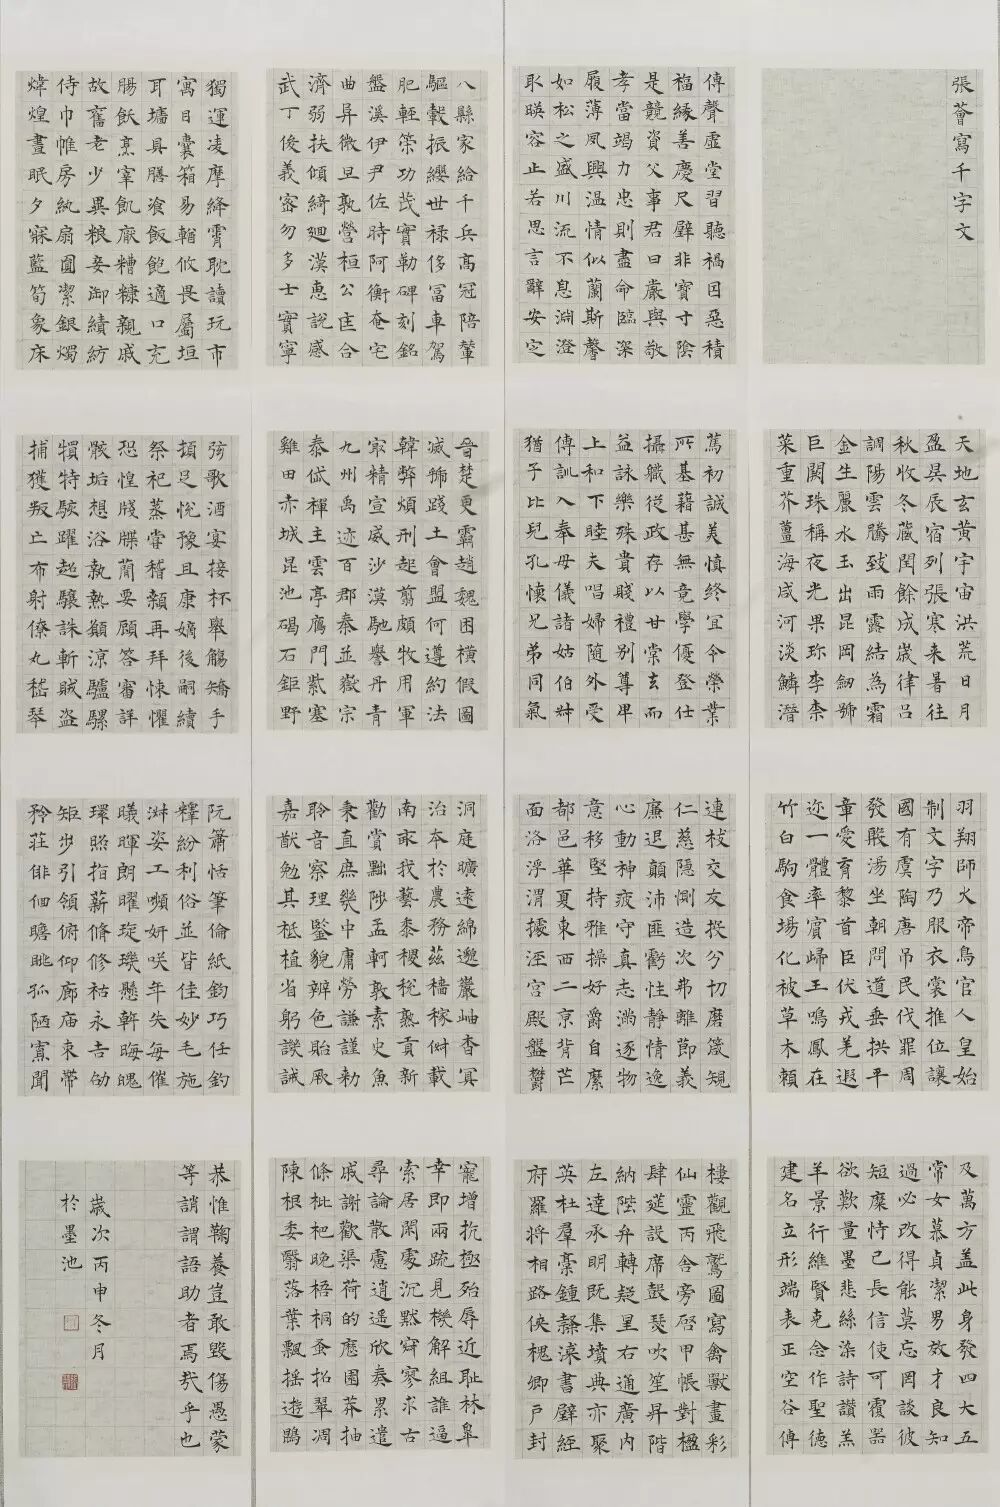 張薈寫千字文
天地玄黃宇宙洪荒日月
盈昃辰宿列張寒来暑往
秋收冬藏閏餘成歲律呂
調陽雲騰致雨露結為霜
金生麗水玉出昆岡劒號
巨闕珠稱夜光果珎李柰
菜重芥薑海咸河淡鱗潛
羽翔師火帝鳥官人皇始
制文字乃服衣裳推位讓
國有虞陶唐吊民伐罪周
發殷湯坐朝問道垂拱平
章愛育黎首臣伏戎羌遐
迩一體率賓歸王鳴鳳在
竹白駒食場化被草木賴
及萬方盖此身發四大五
常女慕貞潔男效才良知
過必改得能莫忘罔談彼
短靡恃己長信使可覆器
欲歎量墨悲絲染詩讃羔
羊景行維賢克念作聖德
建名立形端表正空谷傳
傳聲虛堂習聽禍因惡積
福緣善慶尺璧非寶寸陰
是競資父事君曰嚴與敬
孝當竭力忠則盡命臨深
履薄夙興温情似蘭斯馨
如松之盛川流不息淵澄
取暎容止若思言辭安定
篤初誠美慎終宜令榮業
所基藉甚無竟學優登仕
攝職從政存以甘棠去而
益詠樂殊貴賤禮別尊卑
上和下睦夫唱婦隨外受
傅訓入奉母儀諸姑伯叔
猶子比兒孔懷兄弟同氣
連枝交友投分切磨箴規
仁慈隱惻造次弗離節義
廉退顛沛匪虧性靜情逸
心動神疲守真志滿逐物
意移堅持雅操好爵自縻
都邑華夏東西二京背芒
面洛浮渭據涇宮殿盤鬱
樓觀飛驚圖寫禽獸畫彩
仙靈丙舍旁啓甲帳對楹
肆筵設席鼓瑟吹笙昇階
納陛弁轉疑星右通廣内
左達承明既集墳典亦聚
英杜羣稾鍾隸漆書壁經
府羅將相路俠槐卿戶封
八縣家給千兵高冠陪輦
驅轂振纓世祿侈富車駕
肥輕策功茂實勒碑刻銘
盤溪伊尹佐時阿衡奄宅
曲阜微旦孰營桓公匡合
濟弱扶傾綺迴漢惠說感
武丁俊義密勿多士實寧
晉楚更霸趙魏困橫假圖
滅虢踐土會盟何遵約法
韓弊煩刑起翦頗牧用軍
最精宣威沙漠馳譽丹青
九州禹迹百郡秦並嶽宗
泰岱禪主雲亭鴈門紫塞
雞田赤城昆池碣石鉅野
洞庭曠遠綿邈巖岫杳冥
治本於農務茲穡稼俶載
南畝我藝黍稷稅熟貢新
勸賞黜陟孟軻敦素史魚
秉直庶幾中庸勞謙謹勑
聆音察理鑒貌辨色貽厥
嘉猷勉其祗植省躬譏誡
寵增抗極殆辱近恥林皋
幸即兩疏見機解組誰逼
索居閑處沉默寂寥求古
尋論散慮逍遙欣奏累遣
慼謝歡渠荷的歷園莽抽
條枇杷晚梧桐蚤柘翠凋
陳根委翳落葉飄摇遊鵾
獨運凌摩絳霄耽讀玩市
寓目囊箱易輶攸畏屬垣
耳墻具膳飡飯飽適口充
腸飫烹宰飢厭糟糠親戚
故舊老少異粮妾御績紡
侍巾帷房紈扇圓潔銀燭
煒煌晝眠夕寐藍筍象床
弦歌酒宴接杯舉觴矯手
頓足悅豫且康嫡後嗣續
祭祀蒸嘗稽顙再拜悚懼
恐惶牋牒簡要顧答審詳
骸垢想浴執熱願涼驢騾
犢特駭躍超驤誅斬賊盜
捕獲叛亡布射僚丸嵇琴
阮簫恬筆倫紙鈞巧任釣
釋紛利俗並皆佳妙毛施
淑姿工嚬妍咲年矢每催
曦暉朗曜琁璣懸斡晦魄
環照指薪脩修祜永吉劭
矩步引領俯仰廊庙束帶
矜莊俳佪瞻眺孤陋寡聞
恭惟鞠養豈敢毀傷愚蒙
等誚謂語助者焉哉乎也
歲次丙申冬月
於墨池